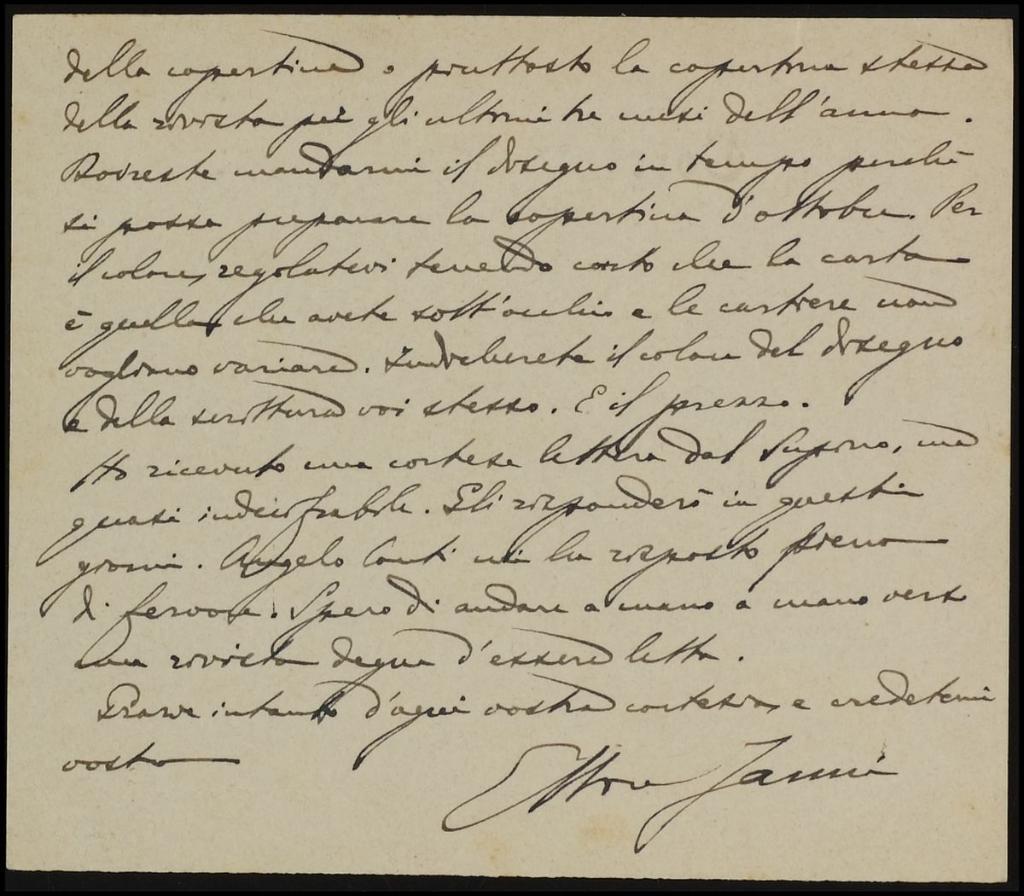 della copertina o piuttosto la copertina stessa
della rivista per gli ultimi tre mesi dell'anno.
Dovreste mandarmi il disegno in tempo perché
si possa preparare la copertina d'ottobre. Per
il colore, regolatevi tenendo conto che la carta
è quella che avete sott'occhio e le cartiere non
vogliono variare. Indicherete il colore del disegno
e della scrittura voi stesso. E il prezzo.
Ho ricevuto una cortese lettera dal Supino, ma
quasi indecifrabile. Gli risponderò in questi
giorni. Angelo Conti mi ha risposto pieno
di fervore. Spero di andare a mano a mano verso
una rivista degna d'essere letta.
Grazie intanto d'ogni vostra cortesia, e credetemi
vostro
Ettore Janni